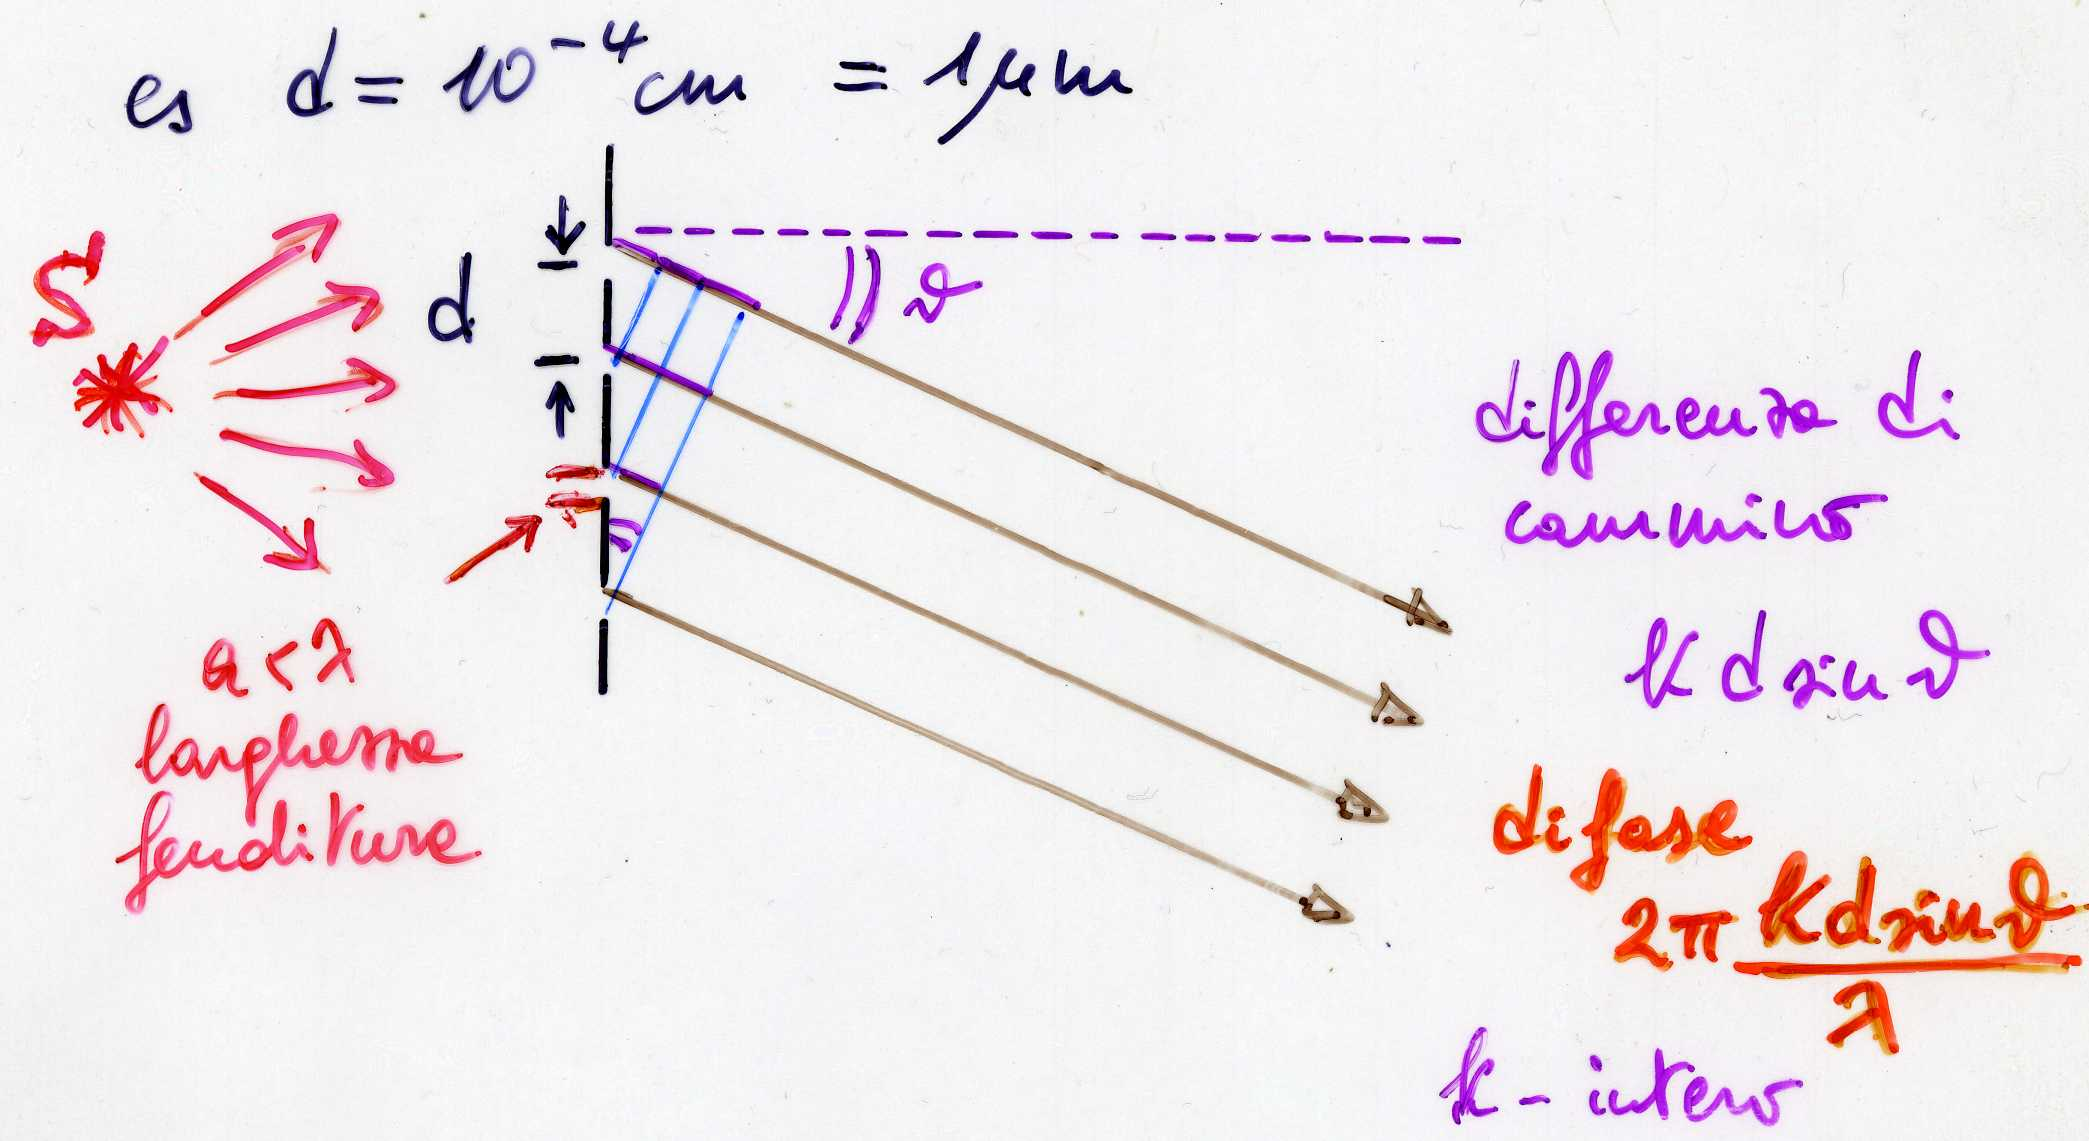 es d = 10⁻⁴ cm = 1 μm
S
d
ϑ
a < λ
larghezza
fenditura
differenza di
cammino
k d sin ϑ
difase
2π k d sin ϑ / λ
k - intero